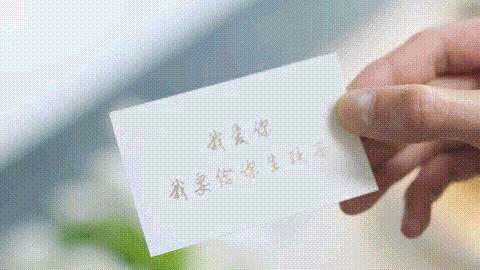 我爱你
我要给你生孩